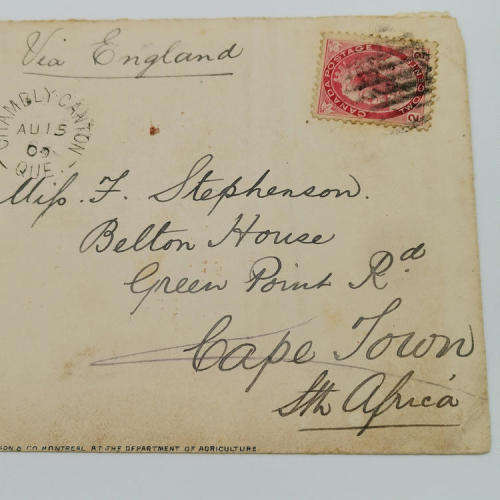 Via England
CANADA POSTAGE
CHAMBLY-CANTON
AU 15
00
QUE.
Miss. F. Stephenson.
Belton House
Green Point Rd
Cape Town
Sth Africa
CO MONTREAL AT THE DEPARTMENT OF AGRICULTURE.